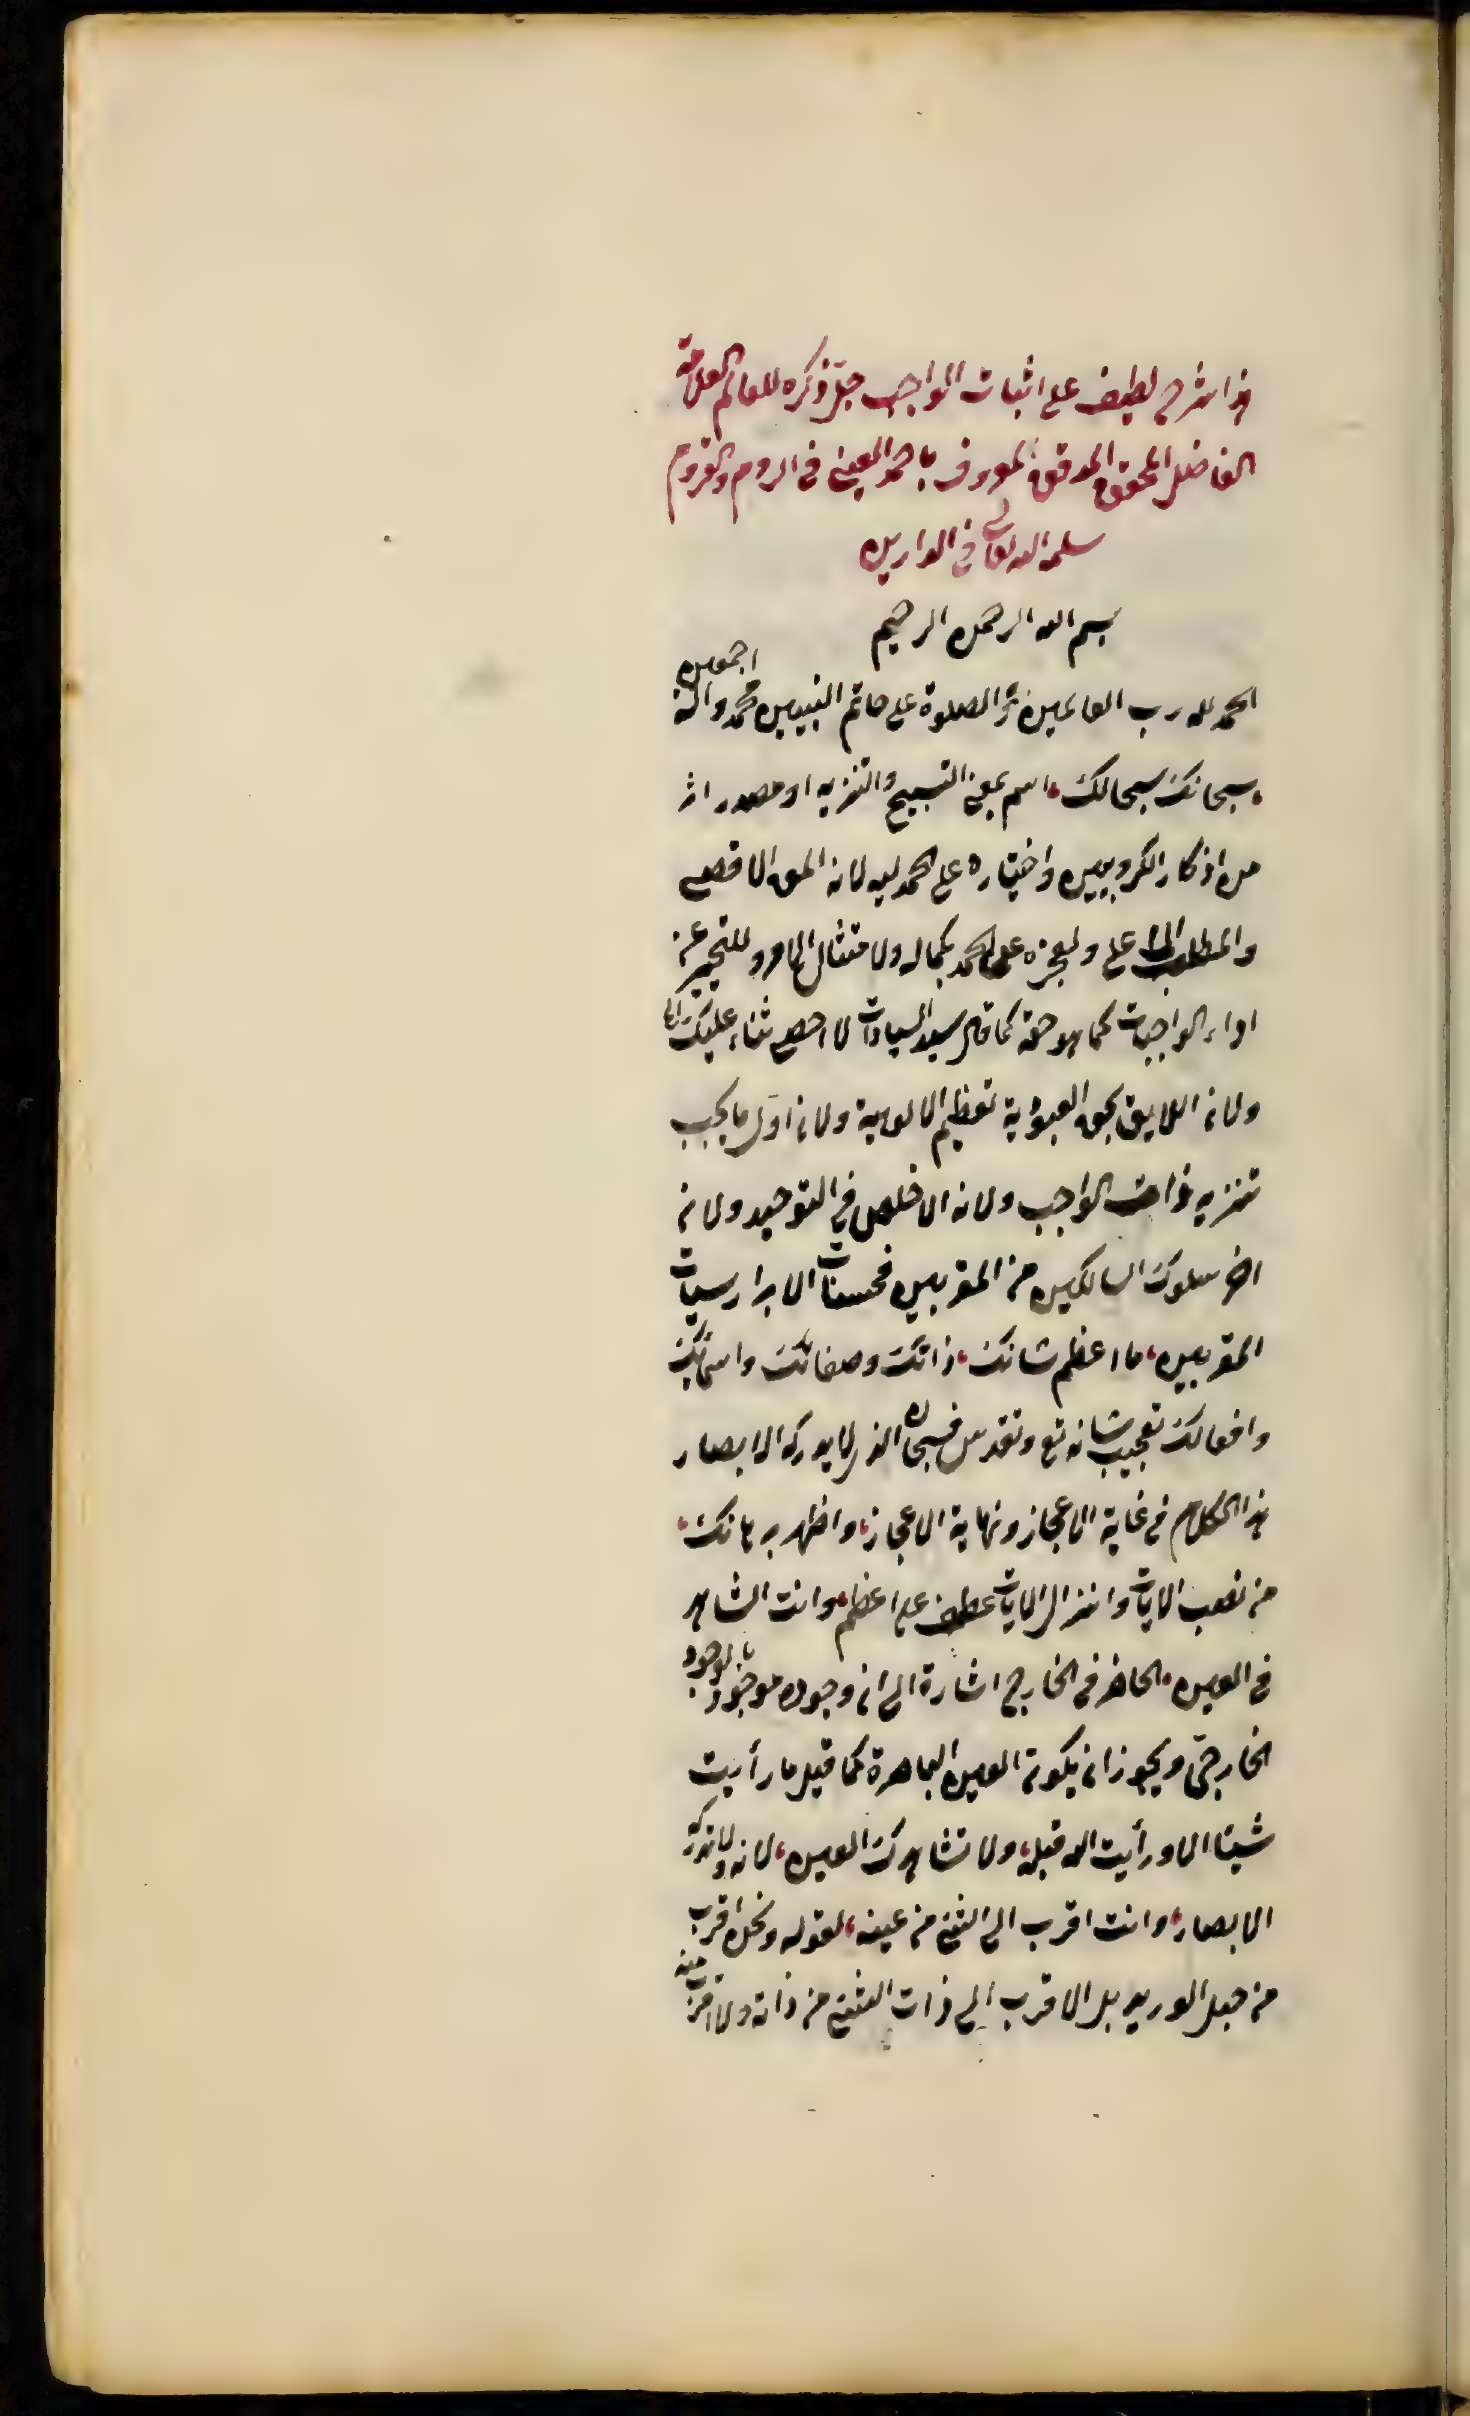 هذا شرح لطيف على اثبات الواجب جل ذكره للعالم العلامة
الفاضل المحقق المدقق المعروف باحمد المعيني في الروم والقروم
سلمه الله تعالى في الدارين
بسم الله الرحمن الرحيم
الحمد لله رب العالمين ثم الصلوة على خاتم النبيين محمد وآله اجمعين
سبحانك سبحالك اسم بمعنى التسبيح والتنزيه او مصدر اثر
من اذكار الكروبيين واختياره على الحمد لله لانه المق الاقصى
والمطلب الاعلى ولعجزه على الحمد بكماله ولامتثال الامر وللتحير عن
اداء الواجبات كما هو حقه كما قال سيد السادات لا احصي ثناء عليك
ولان اللايق بحق العبودية تعظيم الالوهية ولان اول ما يجب
تنزيه ذات الواجب ولانه الاخلص في التوحيد ولانه
اخر سلوك السالكين من المقربين فحسنات الابرار سيئات
المقربين ما اعظم شانك ذاتك وصفاتك واسمائك
وافعالك تعجيب شانه تع وتقدس فسبحان الذي لا يدركه الابصار
هذا الكلام في غاية الاعجاز ونهاية الاعجاز واظهر برهانك
من نصب الايات وانزال الايات عطف على اعظم وانت الشاهد
في العين الحاضر في الخارج اشارة الى ان وجوده موجود بالوجود
الخارجي ويجوز ان يكون العين الباصرة كما قيل ما رأيت
شيئا الا ورأيت الله قبله ولا تشاهدك العين لانه لا تدركه
الابصار وانت اقرب الى الشئ من عينه لقوله ونحن اقرب
من حبل الوريد بل الاقرب الى ذات الشئ من ذاته ولا اقرب منه